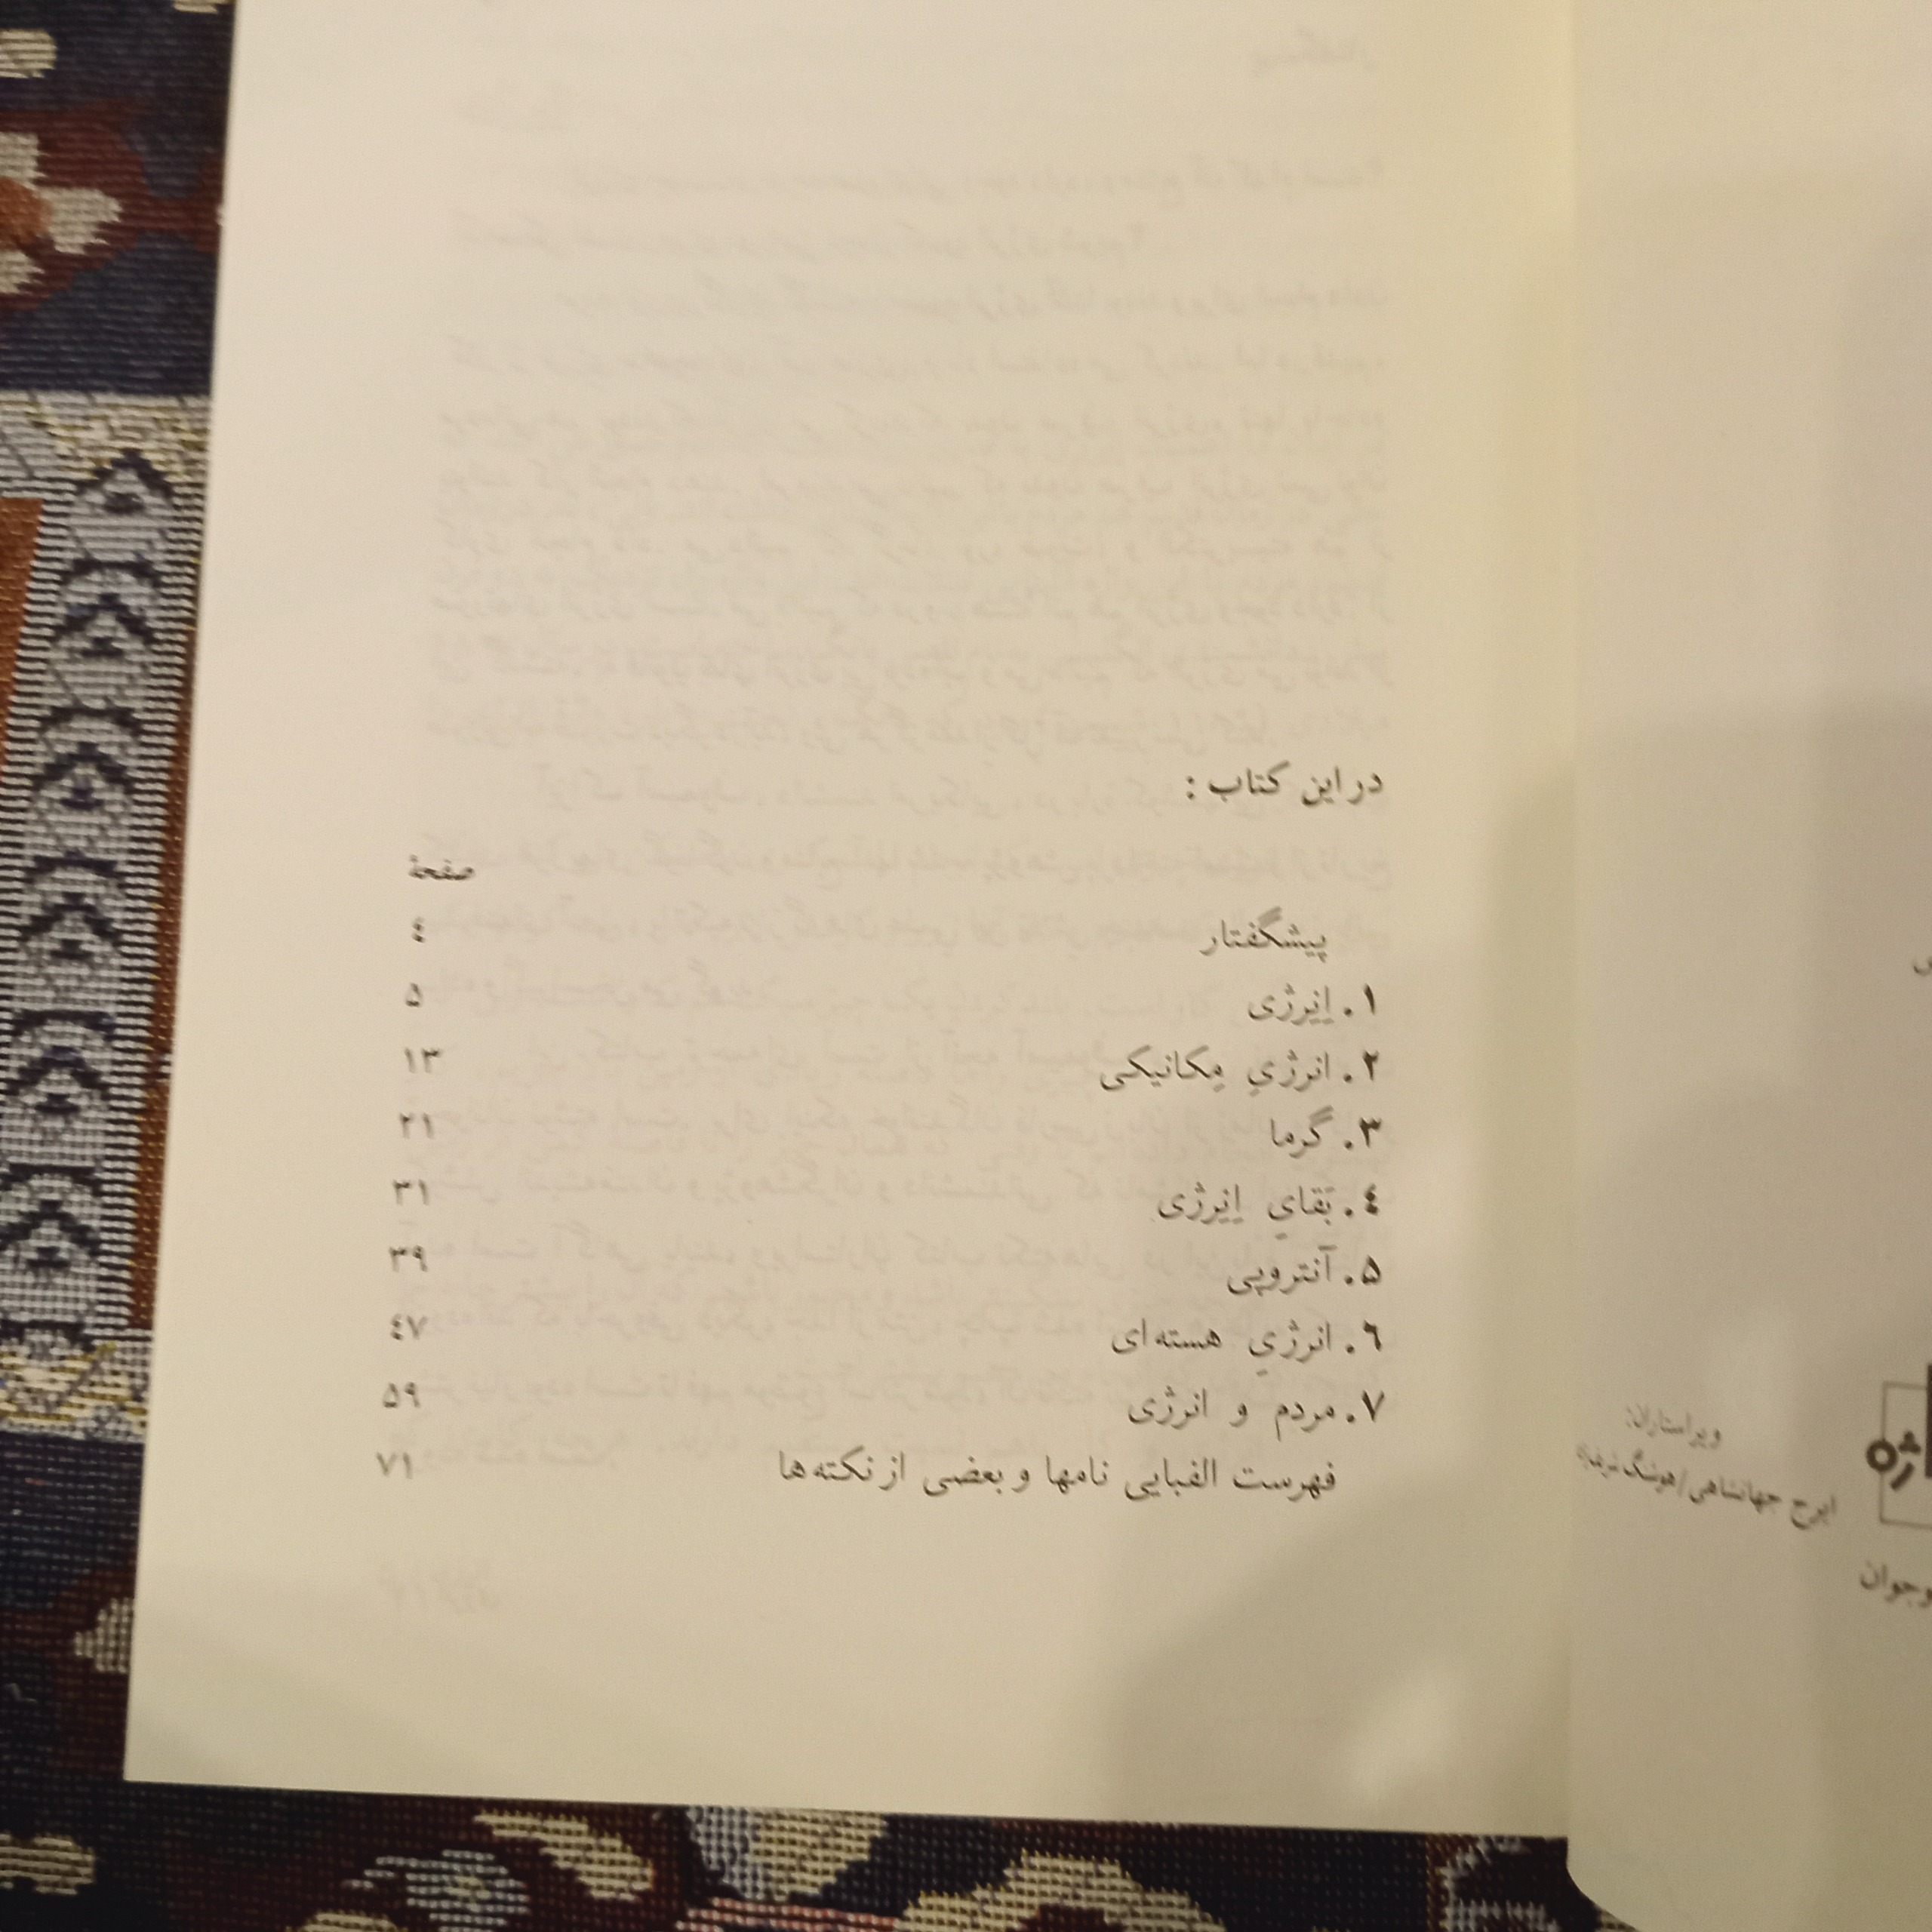 در این کتاب :
صفحهٔ
پیشگفتار ٤
۱. اِنِرژی ۵
۲. انرژیِ مِکانیکی ۱۳
۳. گرما ۲۱
٤. بَقایِ اِنِرژی ۳۱
۵. آنتروپی ۳۹
٦. انرژیِ هسته‌ای ٤۷
۷. مردم و انرژی ۵۹
فهرست الفبایی نامها و بعضی از نکته‌ها ۷۱
ویراستاران:
ایرج جهانشاهی/هوشنگ شریفزاده